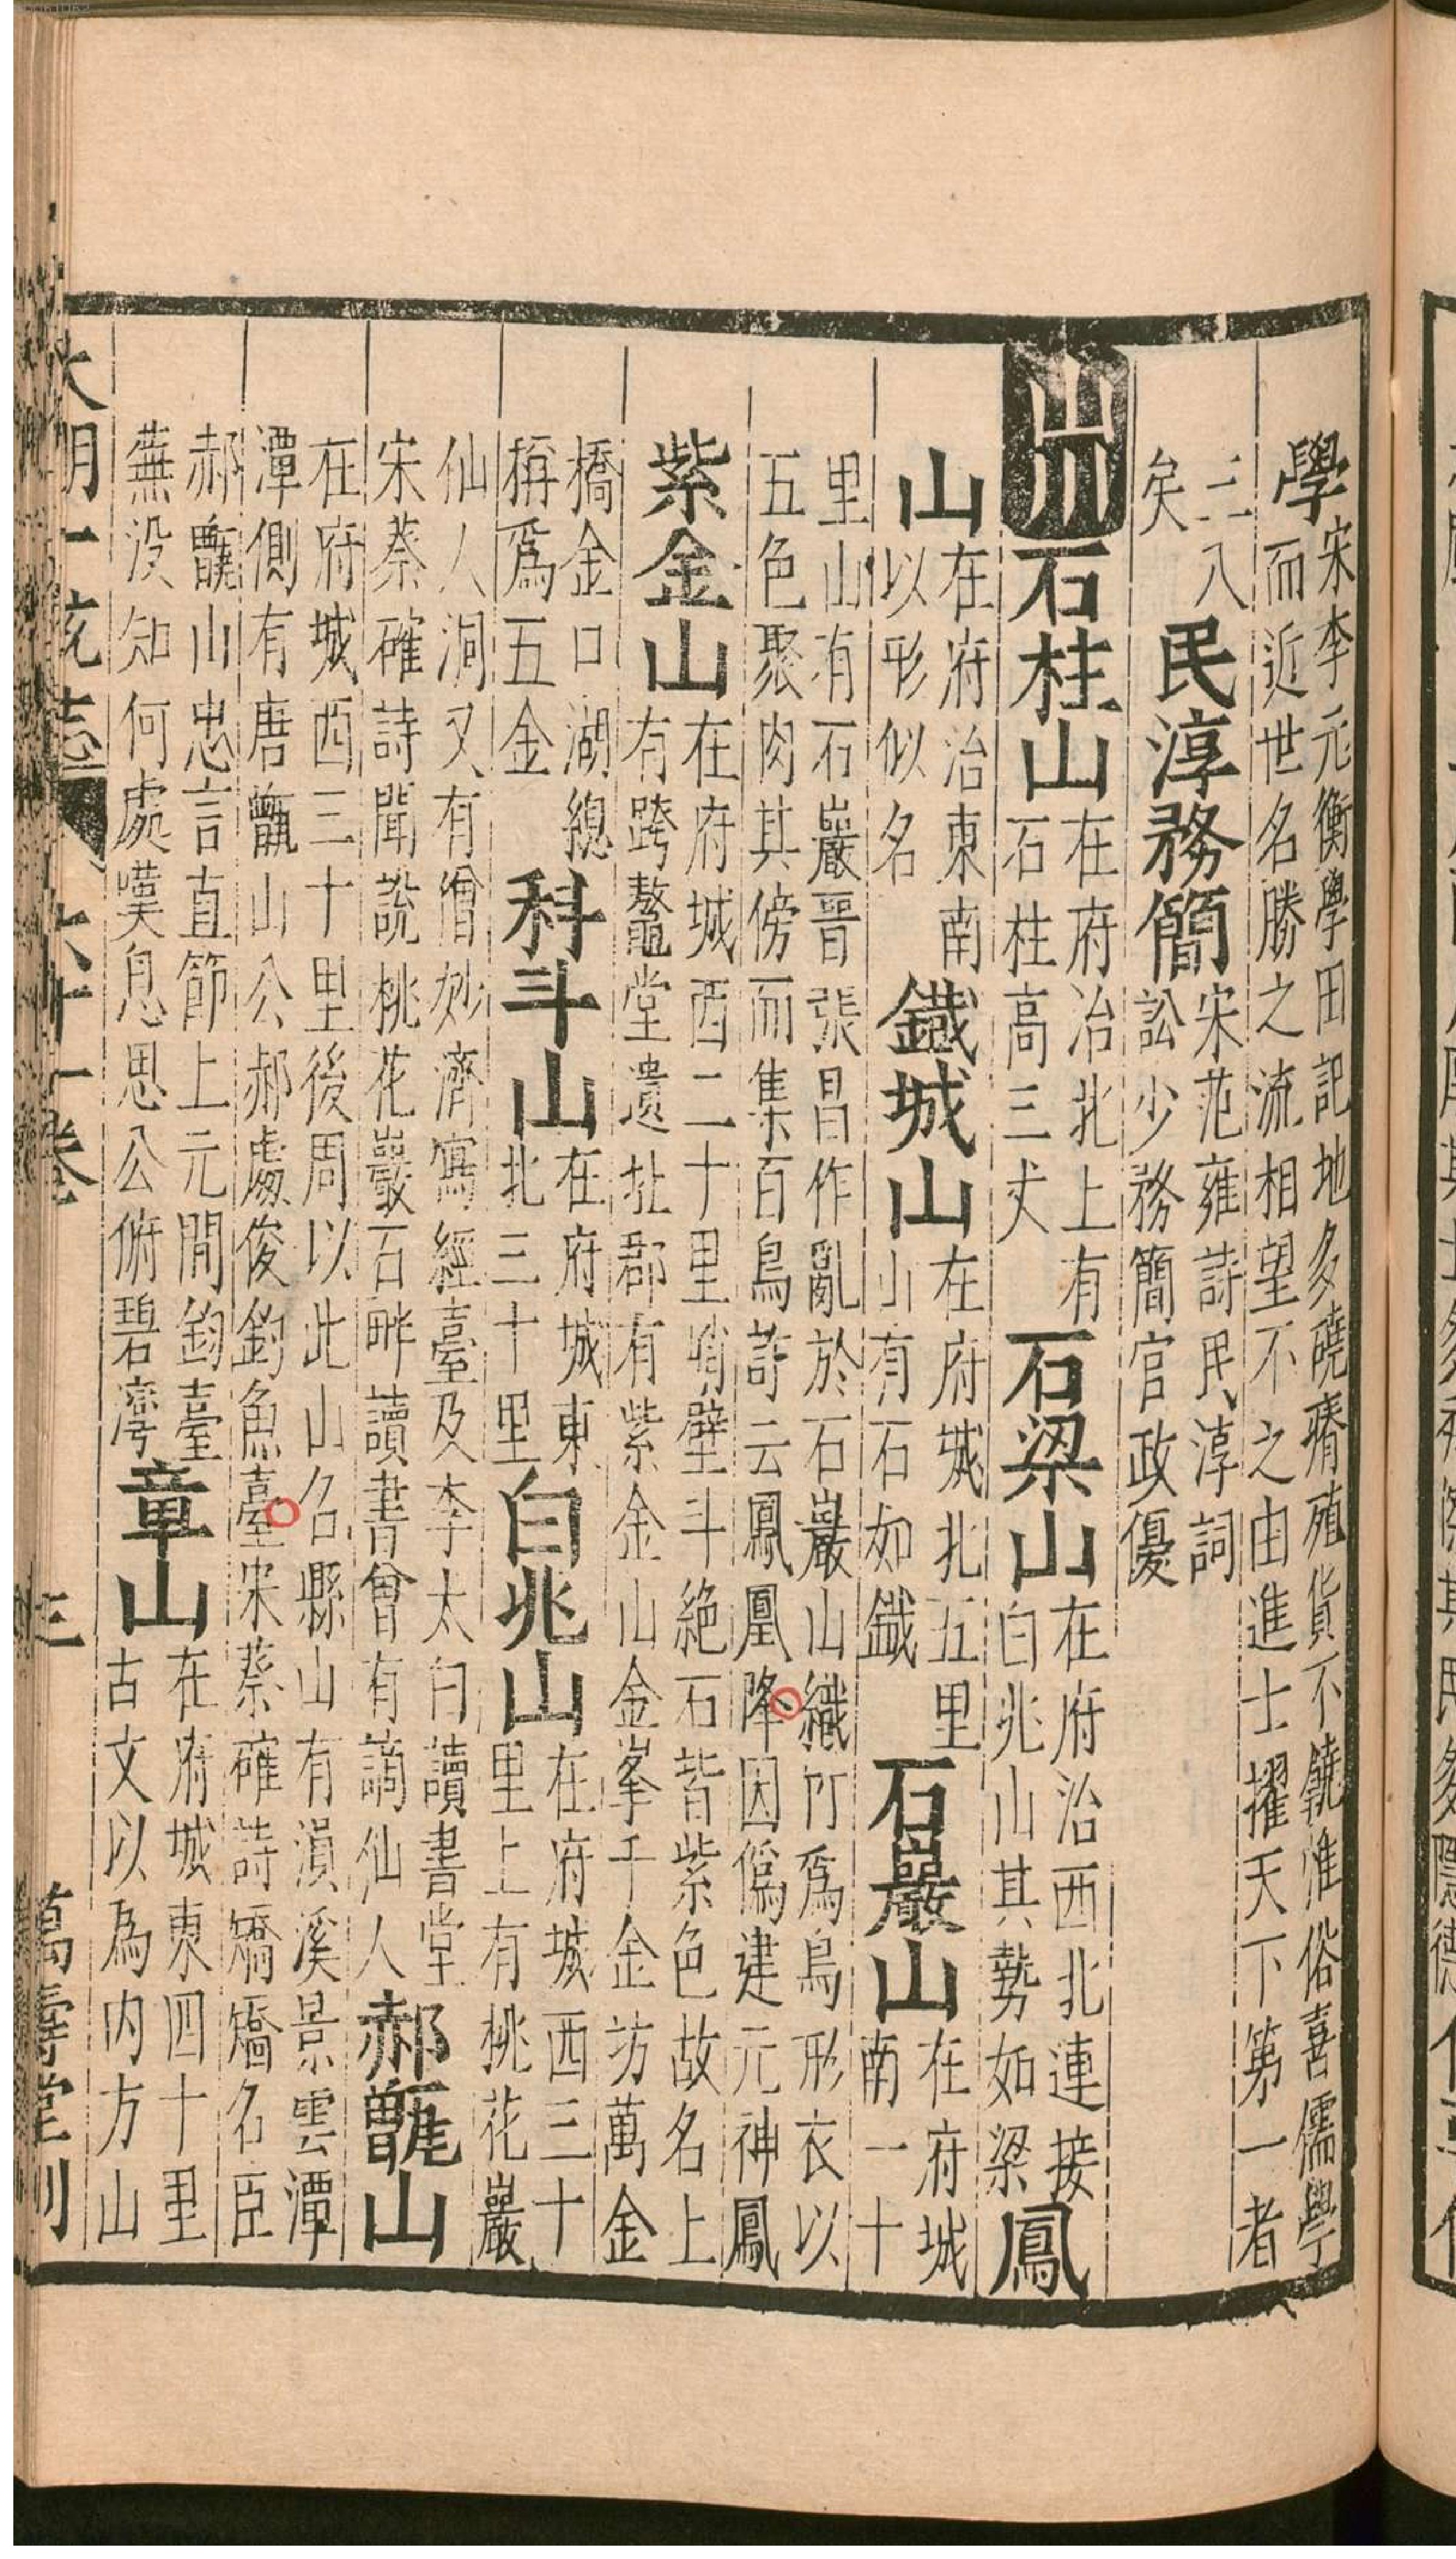 學宋李元衡學田記地多磽瘠殖貨不饒惟俗喜儒學
而近世名勝之流相望不之由進士擢天下第一者
三人
矣
民淳務簡宋范雍詩民淳詞
訟少務簡官政優
山川石柱山在府治北上有
石柱高三丈
石梁山在府治西北連接
白兆山其勢如梁
鳳
山在府治東南
以形似名
鐵城山在府城北五里
山有石如鐵
石巖山在府城
南一十
里山有石巖晉張昌作亂於石巖山織竹爲鳥形衣以
五色聚肉其傍而集百鳥詐云鳳凰降因僞建元神鳳
紫金山在府城西二十里峭壁斗絶石皆紫色故名上
有跨鼇堂遺址郡有紫金山金峯千金坊萬金
橋金口湖總
稱爲五金
科斗山在府城東
北三十里
白兆山在府城西三十
里上有桃花巖
仙人洞又有僧妙濟寫經臺及李太白讀書堂
宋蔡確詩聞說桃花巖石畔讀書曾有謫仙人
郝甑山
在府城西三十里後周以此山名縣山有溳溪景雲潭
潭側有唐甑山公郝處俊釣魚臺宋蔡確詩矯矯名臣
郝甑山忠言直節上元間釣臺
蕪没知何處嘆息思公俯碧灣
章山在府城東四十里
古文以為内方山
大明一統志 六十一卷 三 萬壽堂刊